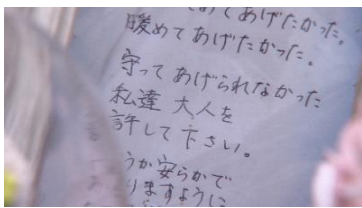 めてあげたかった。
暖めてあげたかった。
守ってあげられなかった
私達大人を
許して下さい。
うか安らかで
りますように